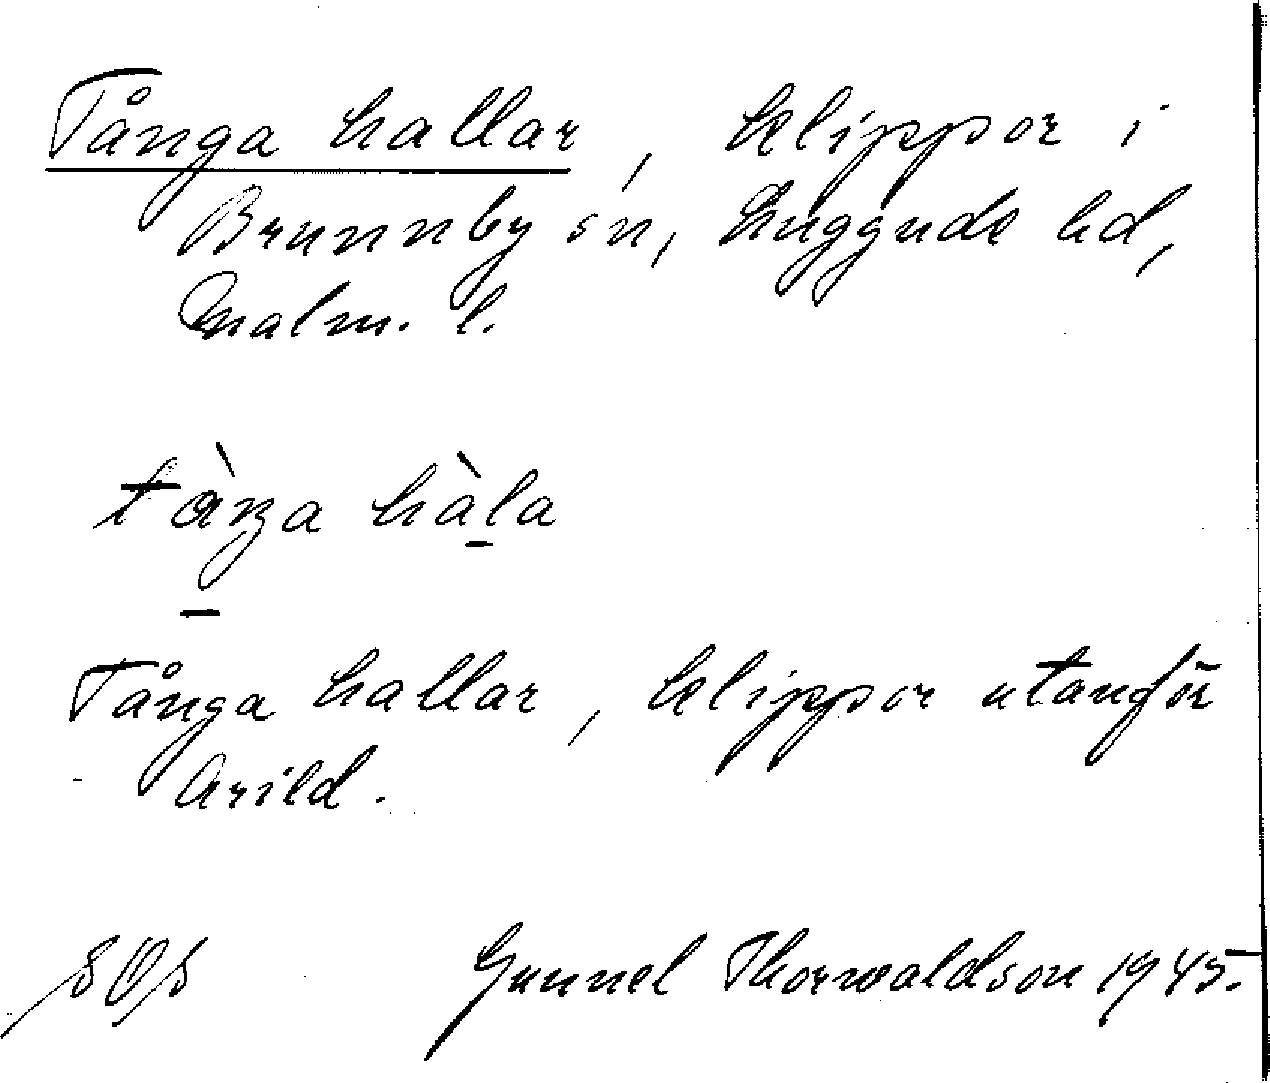 Tånga hallar, klippor i
Brunnby sn, Luggude hd,
Malm. l.
hàla
Tånga hallar, klippor utanför
Arild.
SOS Gunnel Thorwaldson 1945.